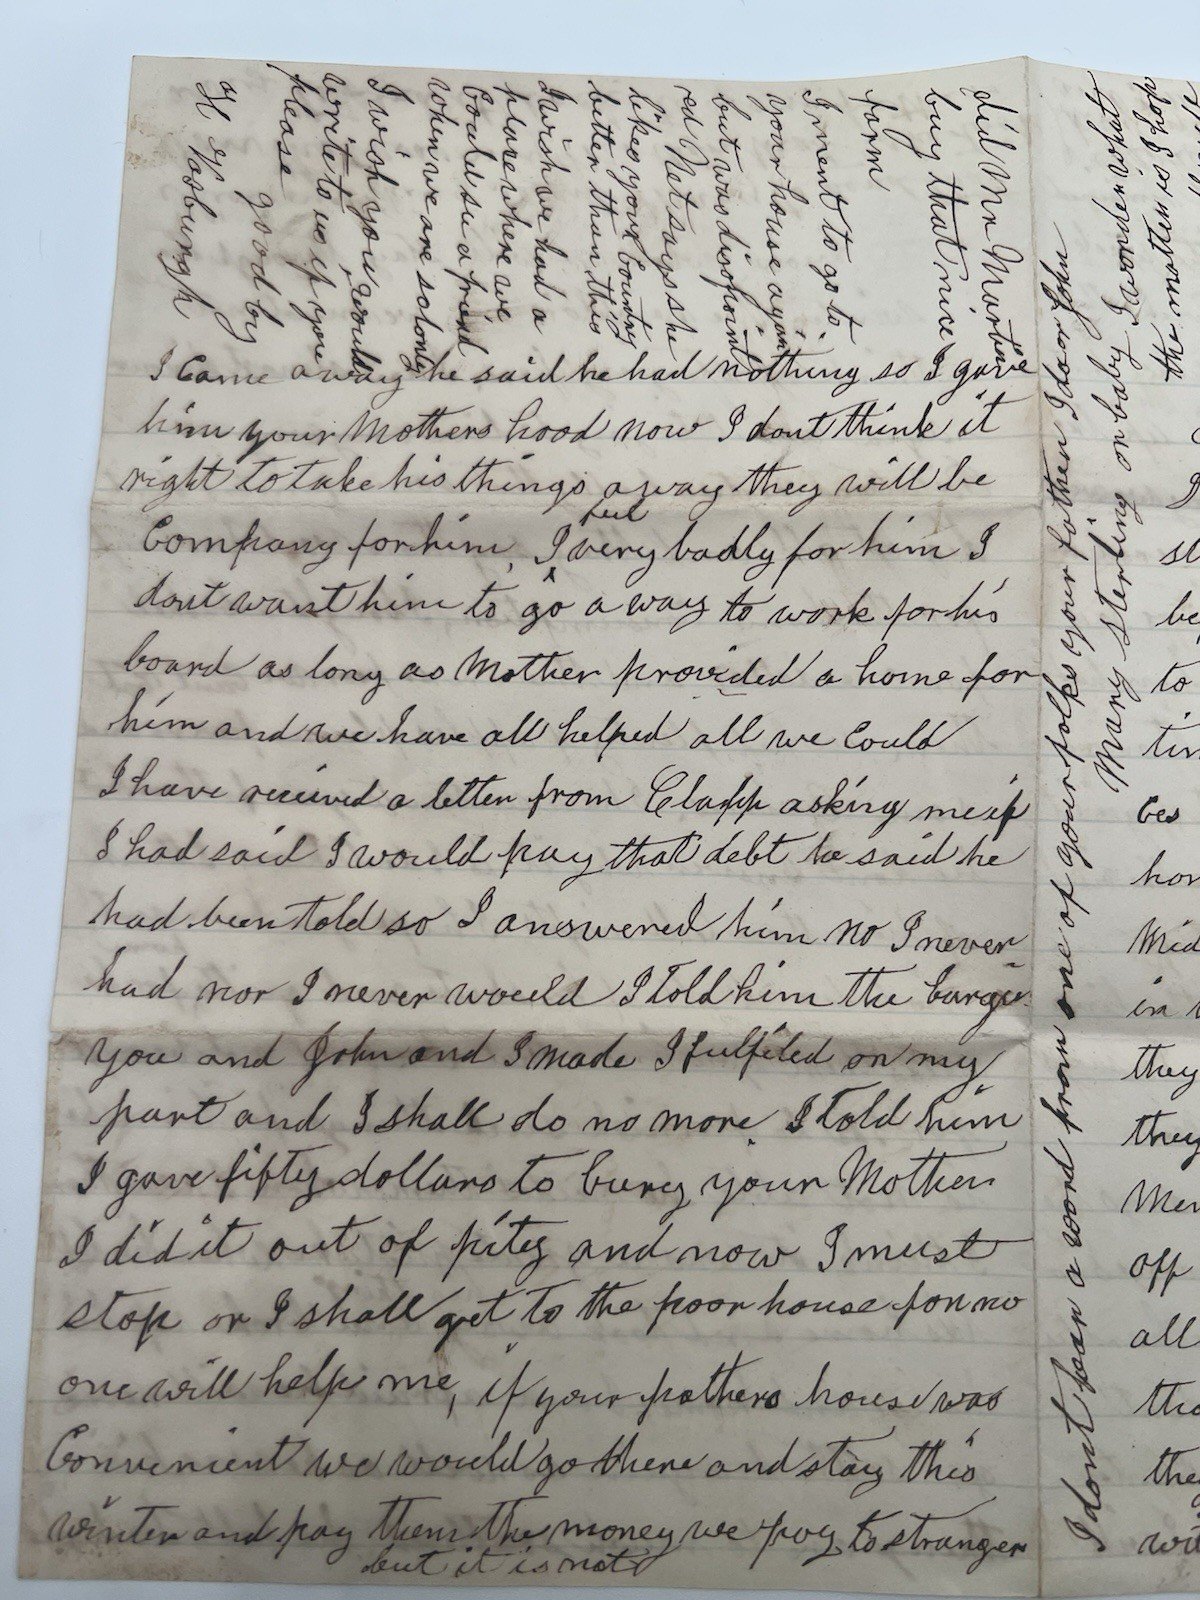 did Mr Martin
buy that nice
farm
I ment to go to
your house again
but was disapoint
red Net says she
likes your Country
better than this
I wish we had a
place where we
Could see a friend
when we are so lonly
I wish you would
write to us if you
please
good by
H Vosburgh
I Came away he said he had nothing so I gave
him your Mothers hood now I dont think it
right to take his things away they will be
Company for him, I feel very badly for him I
dont want him to go a way to work for his
board as long as Mother provided a home for
him and we have all helped all we Could
I have received a letter from Clapp asking me if
I had said I would pay that debt he said he
had been told so I answered him no I never
had nor I never would I told him the barge
you and John and I made I fulfiled on my
part and I shall do no more I told him
I gave fifty dollars to bury your Mother
I did it out of pity and now I must
stop or I shall get to the poor house for no
one will help me, if your fathers house was
Convenient we would go there and stay this
winter and pay them the money we pay to stranger
but it is not
I dont hear a word from one of your folks your father I door John
Mary sterling or baby I wonder what
the matter is I hop
I
st
be
to
tim
Ces
hon
Mid
in
they
they
Mer
off
all
tha
the
wit